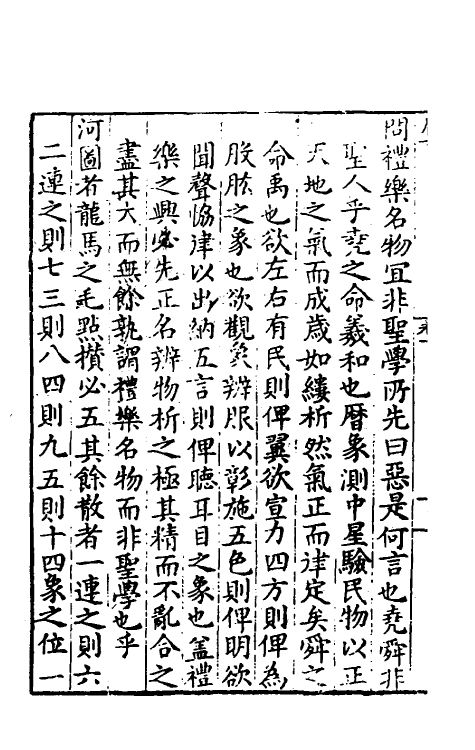 問禮樂名物宜非聖學所先曰惡是何言也堯舜非
聖人乎堯之命羲和也曆象測中星驗民物以正
天地之氣而成歲如縷析然氣正而律定矣舜之
命禹也欲左右有民則俾翼欲宣力四方則俾為
股肱之象也欲觀象辨服以彰施五色則俾明欲
聞聲恊律以出納五言則俾聽耳目之象也盖禮
樂之興必先正名辨物析之極其精而不亂合之
盡其大而無餘孰謂禮樂名物而非聖學也乎
河圖者龍馬之毛點攢必五其餘散者一連之則六
二連之則七三則八四則九五則十四象之位一